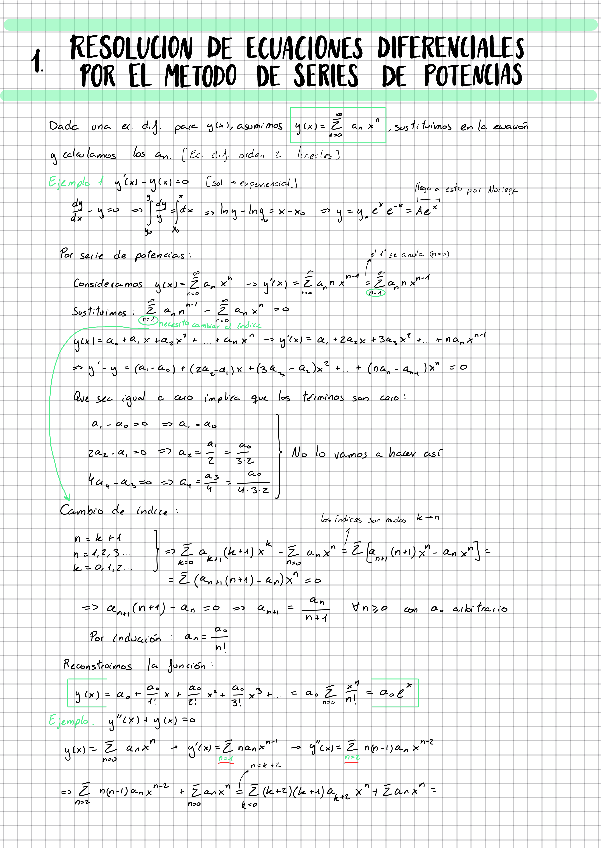 1. RESOLUCION DE ECUACIONES DIFERENCIALES
POR EL METODO DE SERIES DE POTENCIAS
Dada una ec. dif. para y(x), asumimos y(x) = Σ_{n=0}^∞ aₙ xⁿ, sustituimos en la ecuación
y calculamos los aₙ. [Ec. dif. orden 2 lineales]
Ejemplo 1 y'(x) - y(x) = 0 (sol → exponencial)
llego a esto por
dy/dx - y = 0 ⇒ ∫_{y₀}^{y} dy/y = ∫_{x₀}^{x} dx ⇒ ln y - ln y₀ = x - x₀ ⇒ y = y₀ eˣ e^{-x₀} = A eˣ
Por serie de potencias:
el 1º se anula (n=0)
Consideramos y(x) = Σ_{n=0}^∞ aₙ xⁿ → y'(x) = Σ_{n=0}^∞ aₙ n x^{n-1} = Σ_{n=1}^∞ aₙ n x^{n-1}
Sustituimos: Σ_{n=1}^∞ aₙ n^{n-1} - Σ_{n=0}^∞ aₙ xⁿ = 0
necesito cambiar el índice
y(x) = a₀ + a₁x + a₂x² + ... + aₙxⁿ → y'(x) = a₁ + 2a₂x + 3a₃x² + ... + naₙx^{n-1}
⇒ y' - y = (a₁ - a₀) + (2a₂ - a₁)x + (3a₃ - a₂)x² + ... + (naₙ - aₙ₋₁)xⁿ = 0
Que sea igual a cero implica que los términos son cero:
a₁ - a₀ = 0 ⇒ a₁ = a₀
2a₂ - a₁ = 0 ⇒ a₂ = a₁/2 = a₀/3·2
No lo vamos a hacer así
4a₄ - a₃ = 0 ⇒ a₄ = a₃/4 = a₀/4·3·2
Cambio de índice:
los índices son mudos k → n
n = k + 1
n = 1, 2, 3...
k = 0, 1, 2...
⇒ Σ_{k=0}^∞ a_{k+1}(k+1)x^k - Σ_{n=0}^∞ aₙxⁿ = Σ[aₙ₊₁(n+1)xⁿ - aₙxⁿ] =
= Σ(aₙ₊₁(n+1) - aₙ)xⁿ = 0
⇒ aₙ₊₁(n+1) - aₙ = 0 ⇒ aₙ₊₁ = aₙ/n+1 ∀n≥0 con a₀ arbitrario
Por inducción: aₙ = a₀/n!
Reconstruimos la función:
y(x) = a₀ + a₀/1! x + a₀/2! x² + a₀/3! x³ + ... = a₀ Σ_{n=0}^∞ xⁿ/n! = a₀eˣ
Ejemplo. y''(x) + y(x) = 0
y(x) = Σ_{n=0}^∞ aₙxⁿ → y'(x) = Σ_{n=1}^∞ naₙx^{n-1} → y''(x) = Σ_{n=2}^∞ n(n-1)aₙx^{n-2}
n = k+2
⇒ Σ_{n=2}^∞ n(n-1)aₙx^{n-2} + Σ_{n=0}^∞ aₙxⁿ = Σ_{k=0}^∞ (k+2)(k+1)a_{k+2} xⁿ + Σ aₙxⁿ =